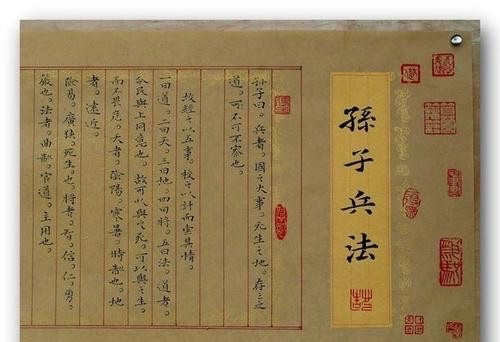 孫子兵法
孫子曰。兵者。國之大事。死生之地。存亡之
道。不可不察也。
故經之以五事。校之以計而索其情。
一曰道。二曰天。三曰地。四曰將。五曰法。道者。
令民與上同意也。故可以與之死。可以與之生。
而不畏危。天者。陰陽。寒暑。時制也。地
者。遠近。
險易。廣狹。死生。也。將者。智。信。仁。勇。
嚴也。法者。曲制。官道。主用也。